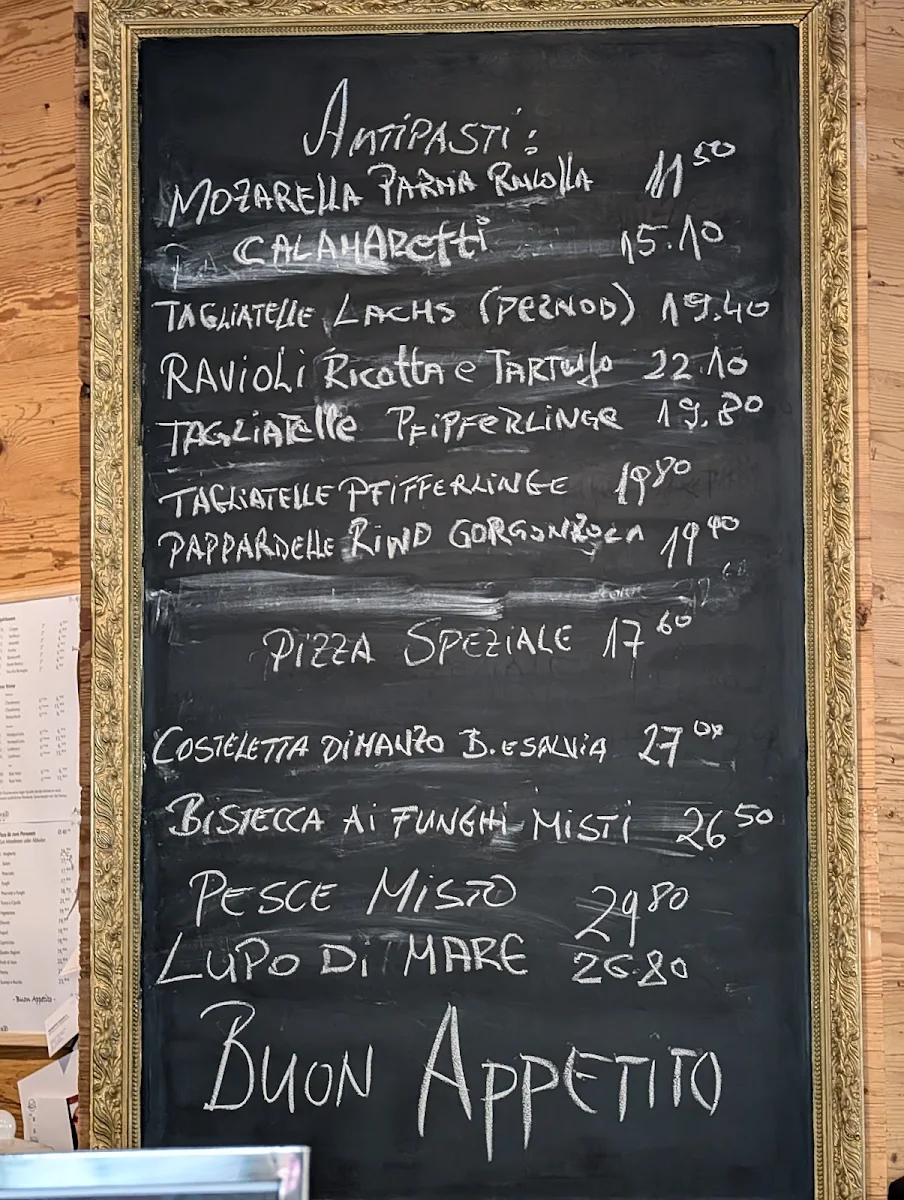 ANTIPASTI:
MOZARELLA PARMA RUCOLLA 11 50
CALAMARETTI 15.10
TAGLIATELLE LACHS (PERNOD) 19.40
RAVIOLI Ricotta e TARTUFO 22.10
TAGLIATElle PFIPFERLINGE 19.80
TAGLIATELLE PFIFFERLINGE 19 80
PAPPARDELLE RIND GORGONZOLA 19 90
PIZZA SPEZIALE 17 60
COSTELETTA DI MANZO B. E SALVIA 27 00
BISTECCA Ai FUNGHI MISTI 26 50
PESCE MISTO 29 80
LUPO Di MARE 26.80
BUON APPETITO
- Buon Appetito -